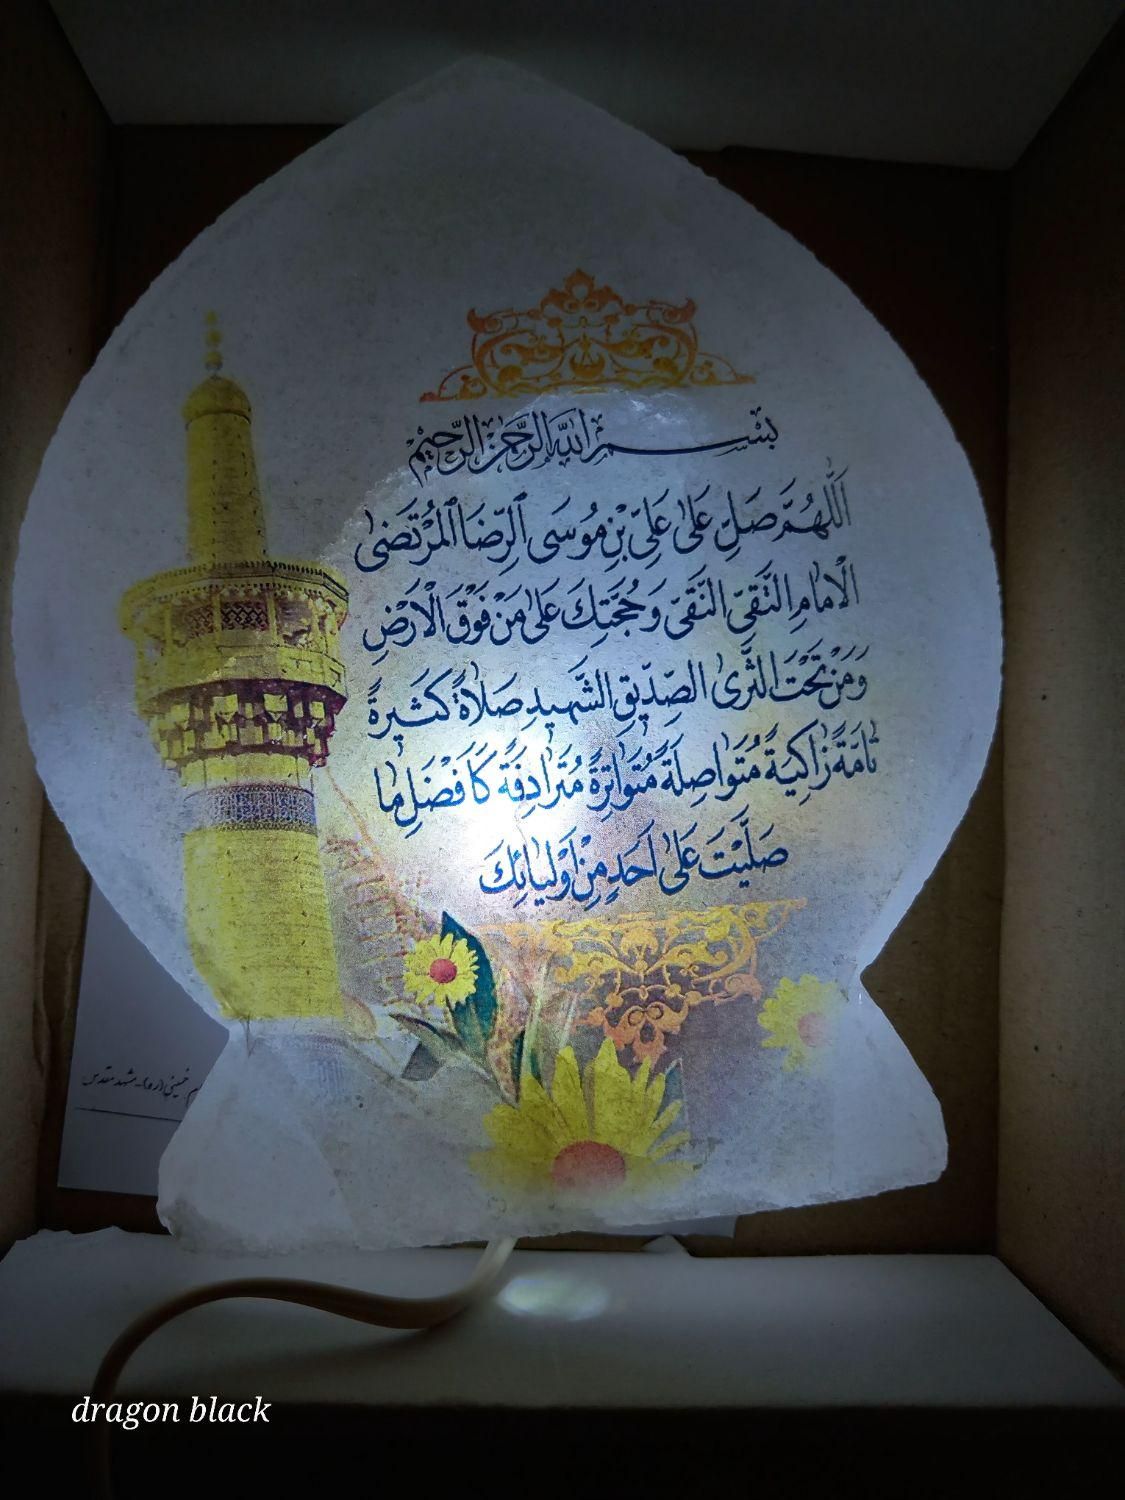 بسم الله الرحمن الرحیم
اَللّٰهُمَّ صَلِّ عَلیٰ عَلِیِّ بْنِ مُوسَی ٱلرِّضَا ٱلْمُرْتَضیٰ
الْاِمٰامِ التَّقِیِّ النَّقِیِّ وَ حُجَّتِكَ عَلیٰ مَنْ فَوْقَ الْاَرْضِ
وَ مَنْ تَحْتَ الثَّریٰ الصِّدّیقِ الشَّهیدِ صَلاٰةً كَثیرَةً
تٰامَّةً زٰاكِیَةً مُتَوٰاصِلَةً مُتَوٰاتِرَةً مُتَرٰادِفَةً كَاَفْضَلِ مٰا
صَلَّیْتَ عَلیٰ اَحَدٍ مِنْ اَوْلِیٰائِكَ
خمینی(ره) - مشهد مقدس
dragon black